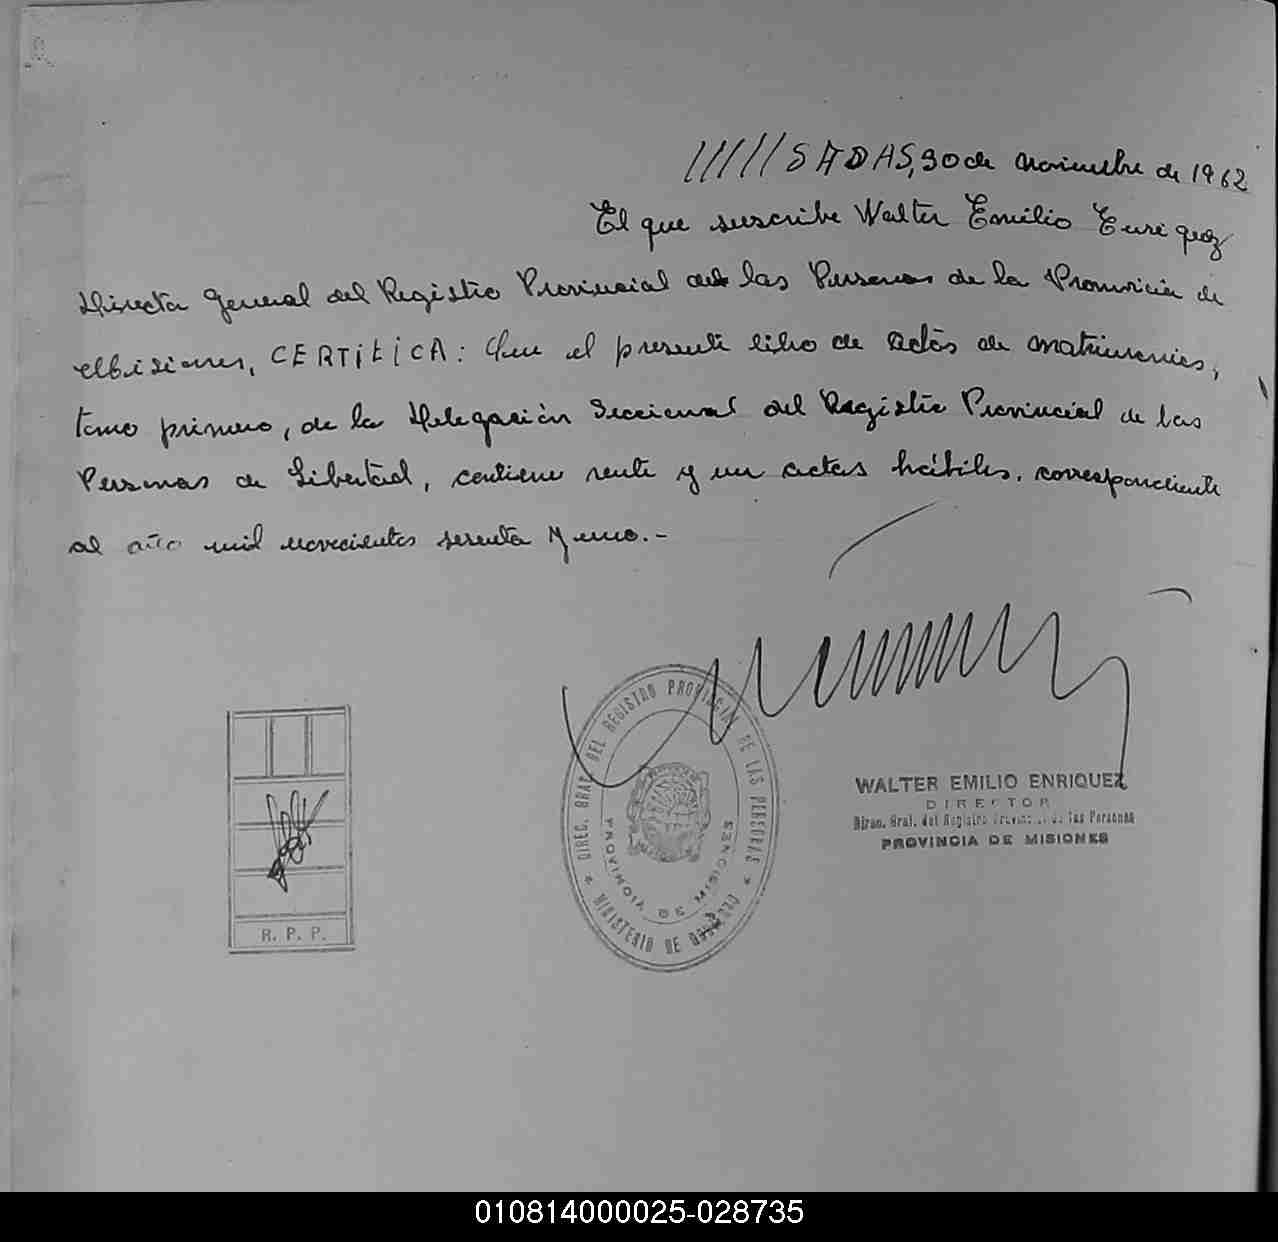 //////SADAS, 30 de noviembre de 1962
El que suscribe Walter Emilio Enriquez
Director General del Registro Provincial de las Personas de la Provincia de
Misiones, CERTIFICA: Que el presente libro de actas de matrimonios,
tomo primero, de la Delegación Seccional del Registro Provincial de las
Personas de Libertad, contiene veinte y un actas hábiles, correspondiente
al año mil novecientos sesenta y uno.-
DIREC. GRAL. DEL REGISTRO PROVINCIAL DE LAS PERSONAS
MINISTERIO DE GOBIERNO
PROVINCIA DE MISIONES
WALTER EMILIO ENRIQUEZ
DIRECTOR
Direc. Gral. del Registro Provincial de las Personas
PROVINCIA DE MISIONES
R. P. P.
010814000025-028735